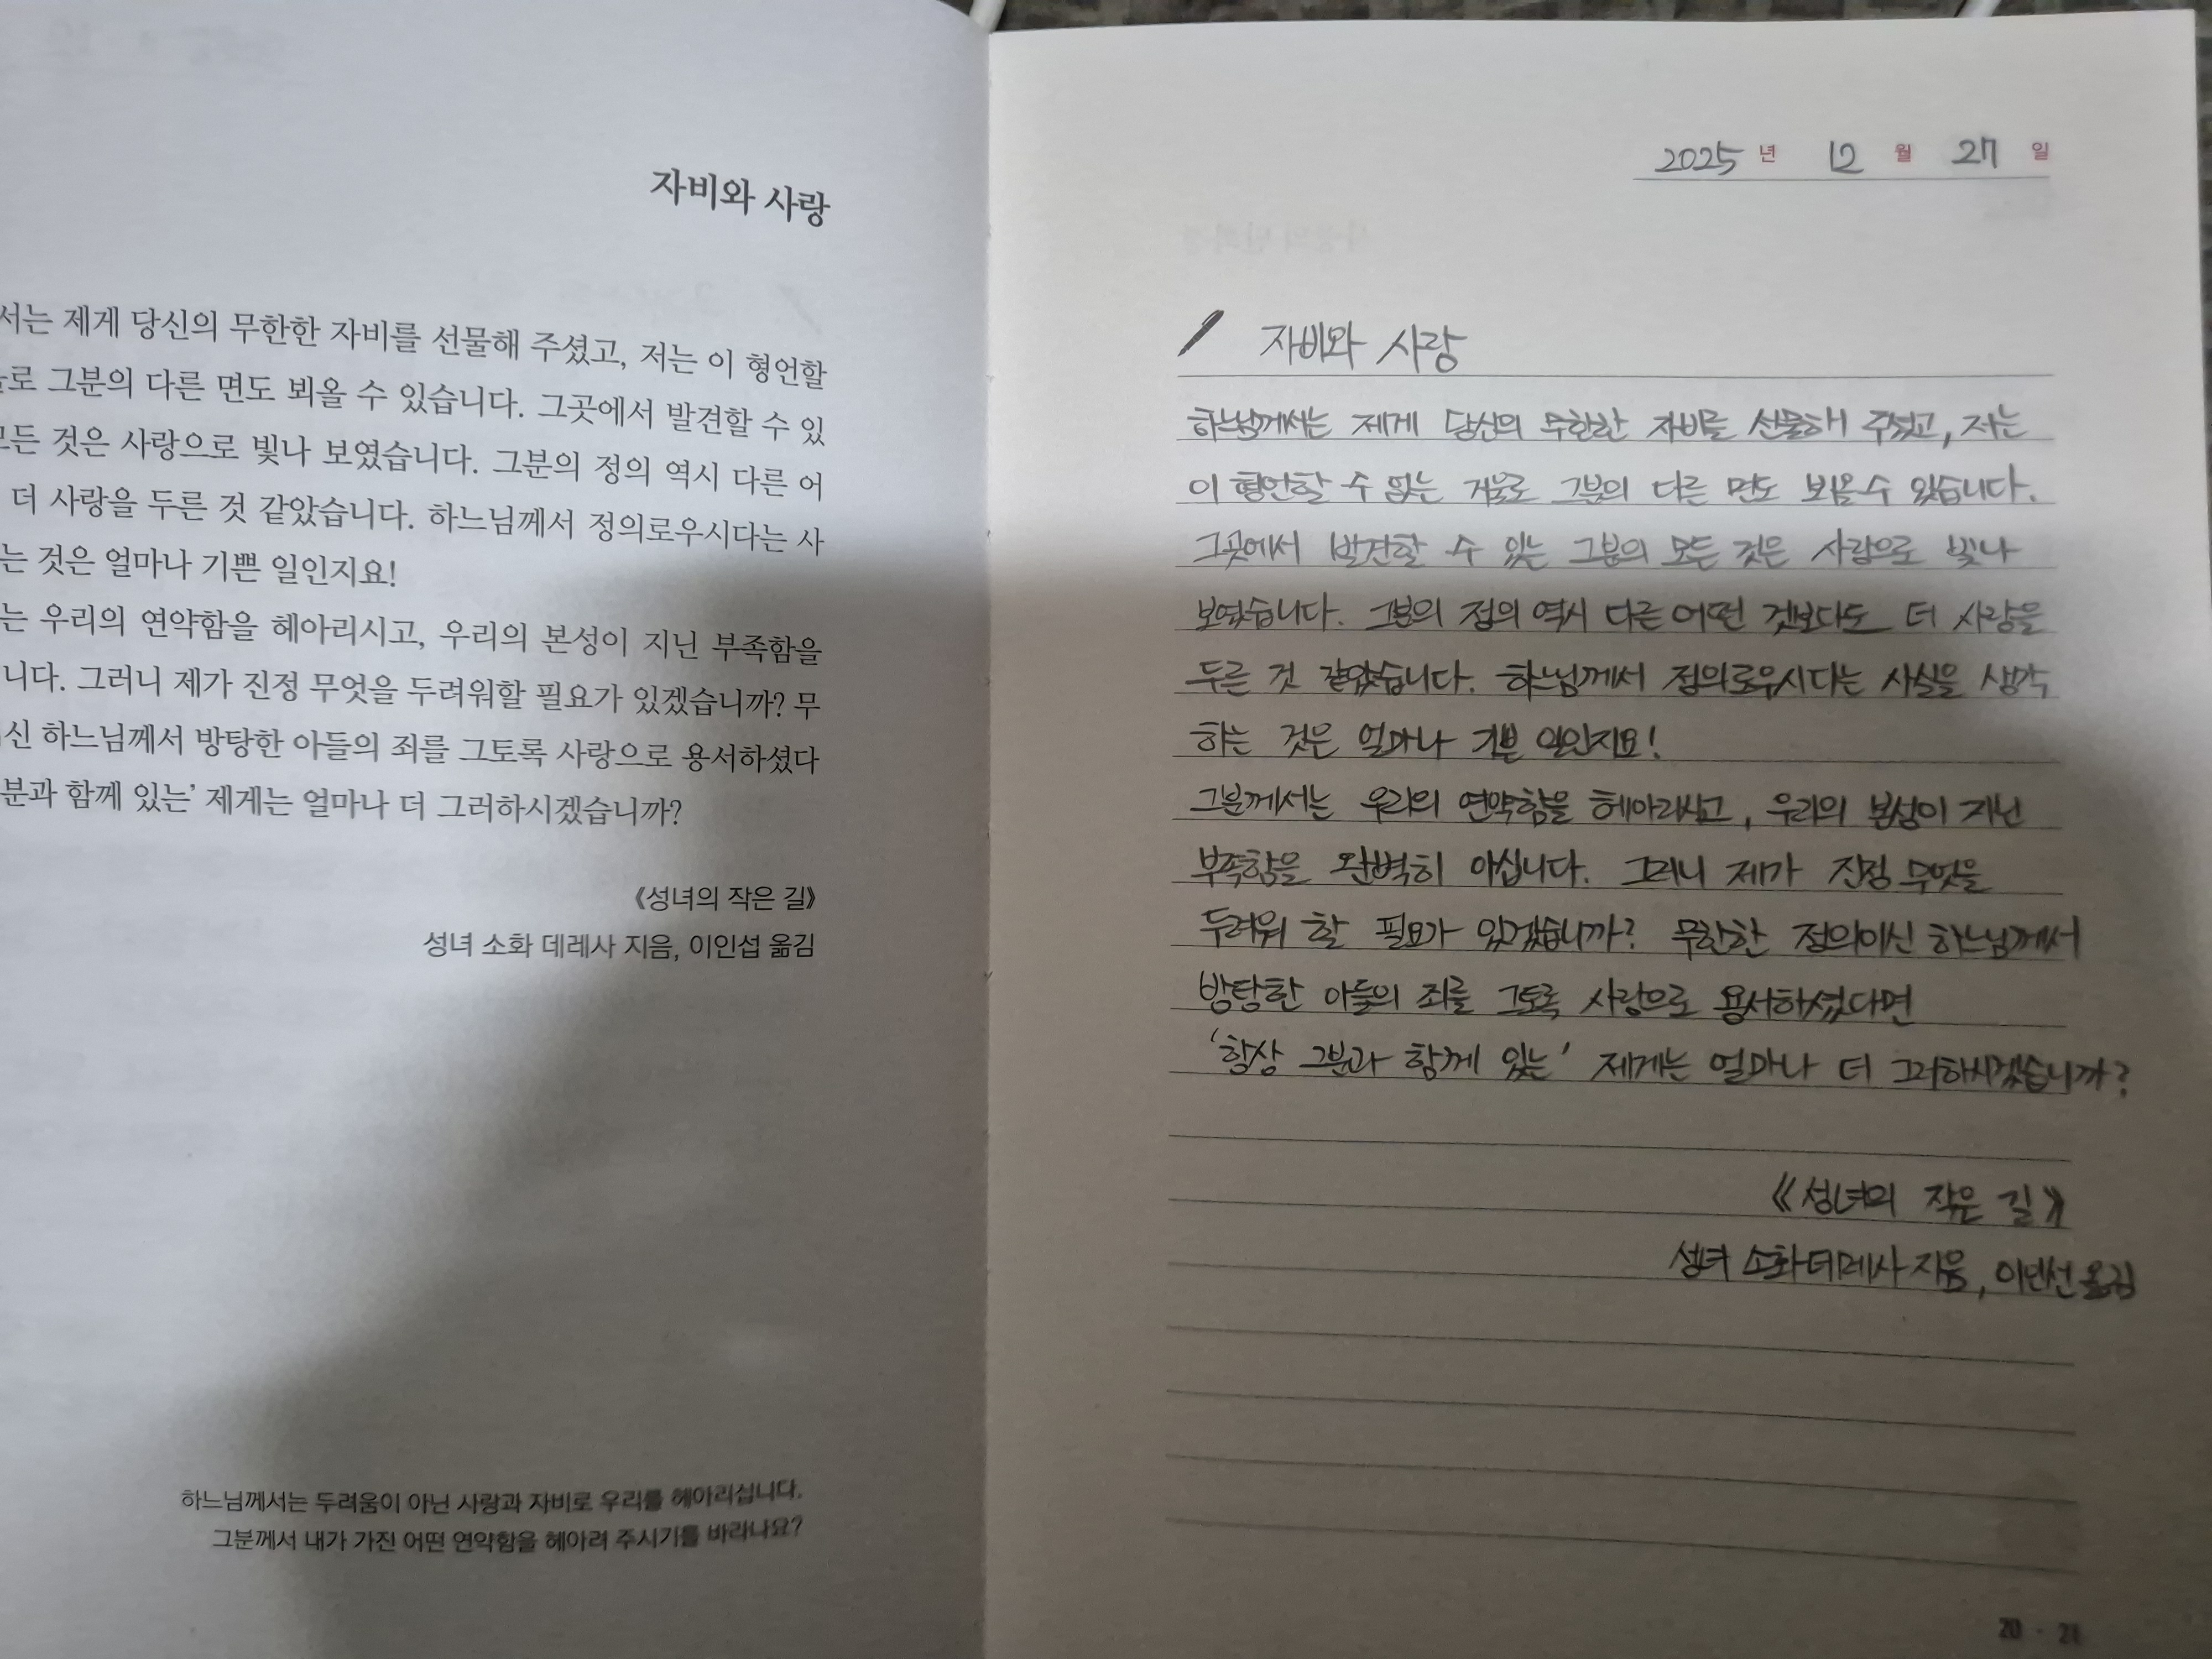 자비와 사랑
서는 제게 당신의 무한한 자비를 선물해 주셨고, 저는 이 형언할
로 그분의 다른 면도 뵈올 수 있습니다. 그곳에서 발견할 수 있
모든 것은 사랑으로 빛나 보였습니다. 그분의 정의 역시 다른 어
더 사랑을 두른 것 같았습니다. 하느님께서 정의로우시다는 사
는 것은 얼마나 기쁜 일인지요!
는 우리의 연약함을 헤아리시고, 우리의 본성이 지닌 부족함을
니다. 그러니 제가 진정 무엇을 두려워할 필요가 있겠습니까? 무
신 하느님께서 방탕한 아들의 죄를 그토록 사랑으로 용서하셨다
분과 함께 있는’ 제게는 얼마나 더 그러하시겠습니까?
《성녀의 작은 길》
성녀 소화 데레사 지음, 이인섭 옮김
하느님께서는 두려움이 아닌 사랑과 자비로 우리를 헤아리십니다.
그분께서 내가 가진 어떤 연약함을 헤아려 주시기를 바라나요?
2025 년 12 월 27 일
자비와 사랑
하느님께서는 제게 당신의 무한한 자비를 선물해 주셨고, 저는
이 형언할 수 없는 거울로 그분의 다른 면도 뵈올 수 있습니다.
그곳에서 발견할 수 있는 그분의 모든 것은 사랑으로 빛나
보였습니다. 그분의 정의 역시 다른 어떤 것보다도 더 사랑을
두른 것 같았습니다. 하느님께서 정의로우시다는 사실을 생각
하는 것은 얼마나 기쁜 일인지요!
그분께서는 우리의 연약함을 헤아리시고, 우리의 본성이 지닌
부족함을 완벽히 아십니다. 그러니 제가 진정 무엇을
두려워 할 필요가 있겠습니까? 무한한 정의이신 하느님께서
방탕한 아들의 죄를 그토록 사랑으로 용서하셨다면
‘항상 그분과 함께 있는’ 제게는 얼마나 더 그러하시겠습니까?
《성녀의 작은 길》
성녀 소화 데레사 지음, 옮김
20 · 21